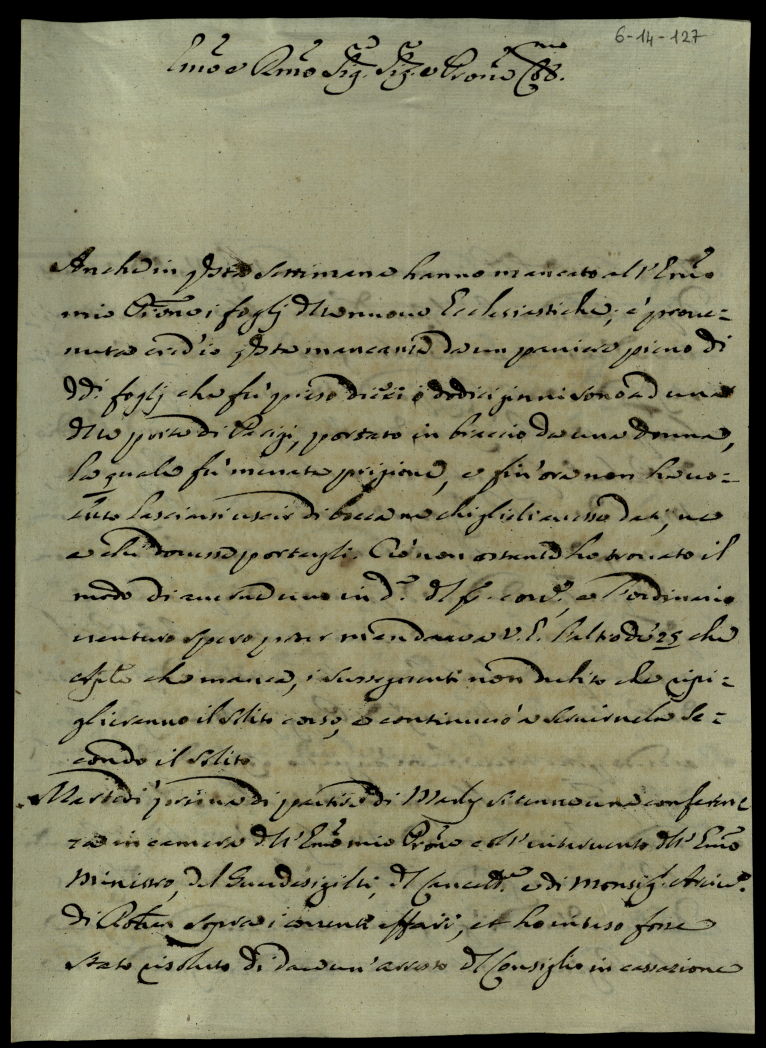 6-14-127
Emo e Rmo Sig. Sig. e Prone Col.mo
Anche in qsta settimana hanno mancato all'Emo
mio Prone i foglj dlle nuove Ecclesiastiche; è prove=
nuta cred'io qsta mancanza da un paniere pieno di
dd.i foglj che fù preso dieci o dodici giorni sono ad una
dlle porte di Parigi, portato in braccio da una donna,
la quale fù menata prigione, e fin'ora non ha vo=
luto lasciarsi uscir di bocca ne chi gli eli avesse dati, ne
a chi dovesse portargli. Ciò non ostante ho trovato il
modo di averne uno in d.a dl p. corr.e, e l'ordinario
venturo spero poter mandare a V.E. l'altro de' 25 che
è qllo che manca, i susseguenti non dubito che ripi=
glieranno il solito corso, e continuerò a servirnela se=
condo il solito.
Martedì prima di partire di Marly si tenne una conferen
za in camera dll'Emo mio Prone coll'intervento dll'Emo
Ministro, del Guardasigilli, dl Cancell.e e di Monsig.r Arciv.o
di Rohan sopra i correnti affari, et ho inteso fosse
stato risoluto di dare un'arresto dl Consiglio in cassazione